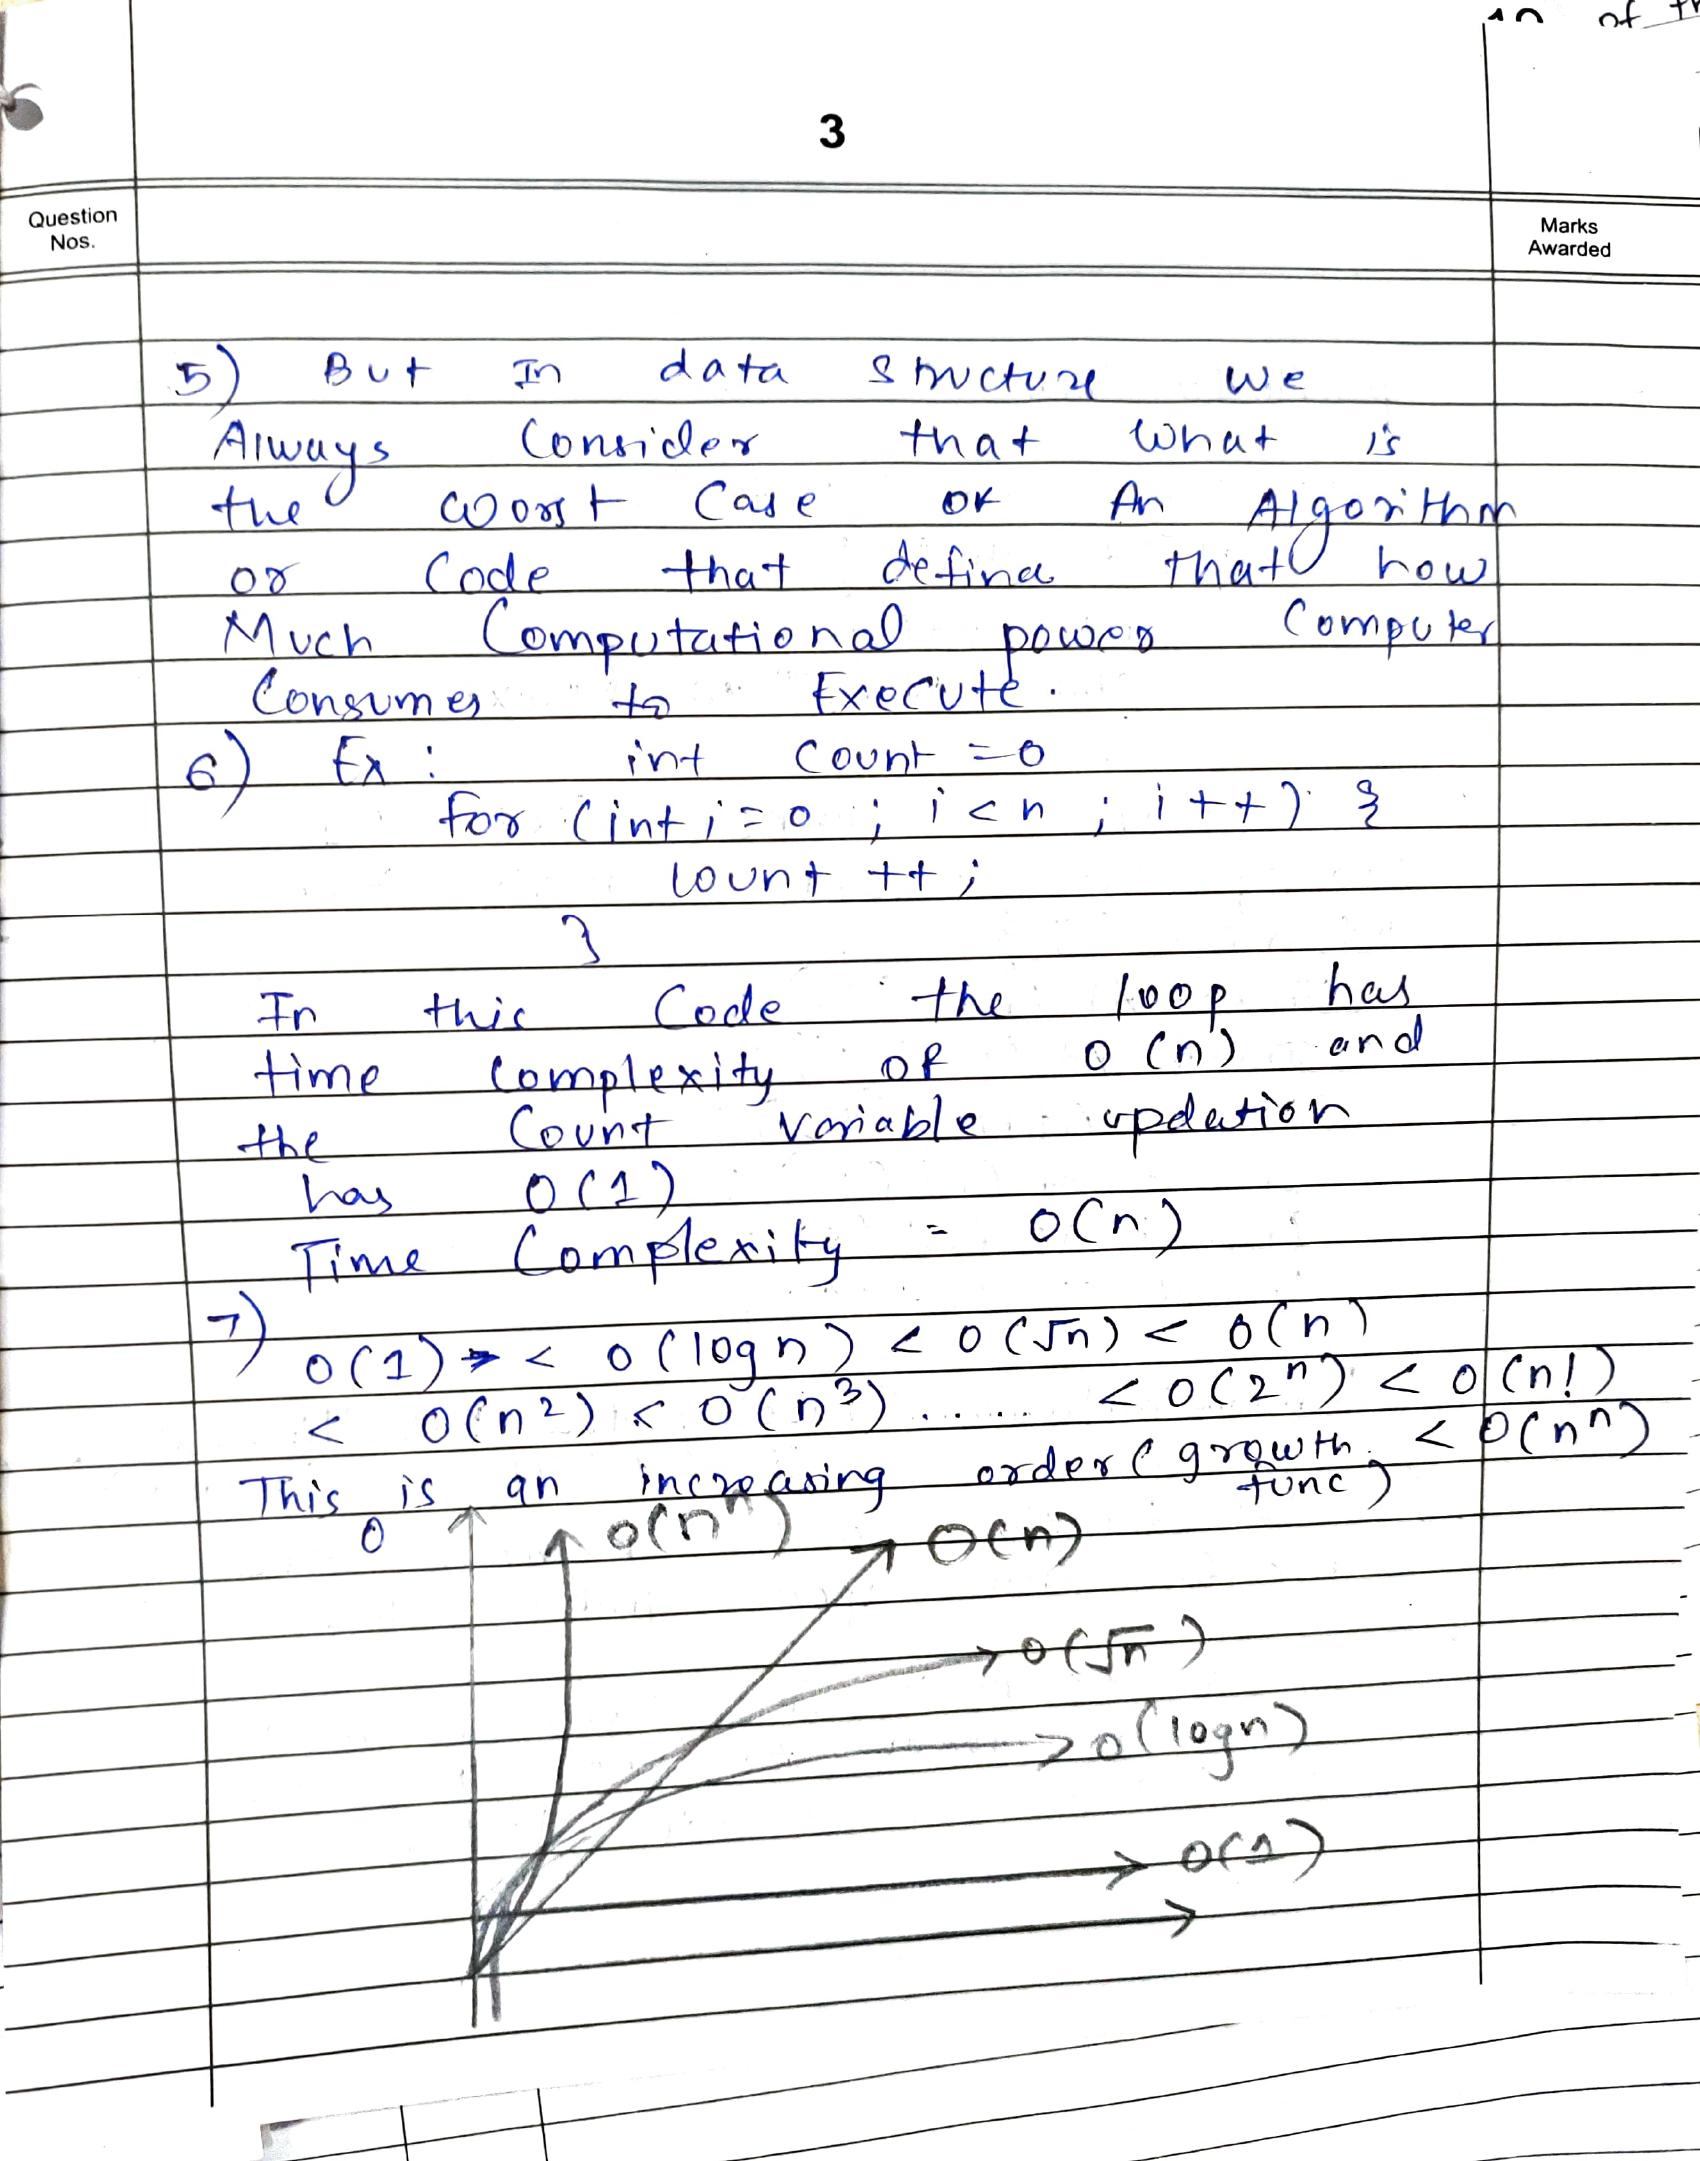 of
3
Question
Nos.
Marks
Awarded
5) But In data structure we
Always Consider that what is
the worst Case of An Algorithm
or Code that define that how
Much Computational power Computer
Consumes to Execute.
6) Ex : int Count = 0
for (int i = 0 ; i < n ; i ++) {
count ++ ;
}
In this Code the loop has
time Complexity of O (n) and
the Count variable updation
has O(1)
Time Complexity = O(n)
7)
O(1) < O(log n) < O(√n) < O(n)
< O(n²) < O(n³) ..... < O(2ⁿ) < O(n!)
< O(nⁿ)
This is an increasing order (growth
func)
O
O(nⁿ)
O(n)
O(√n)
O(logn)
O(1)